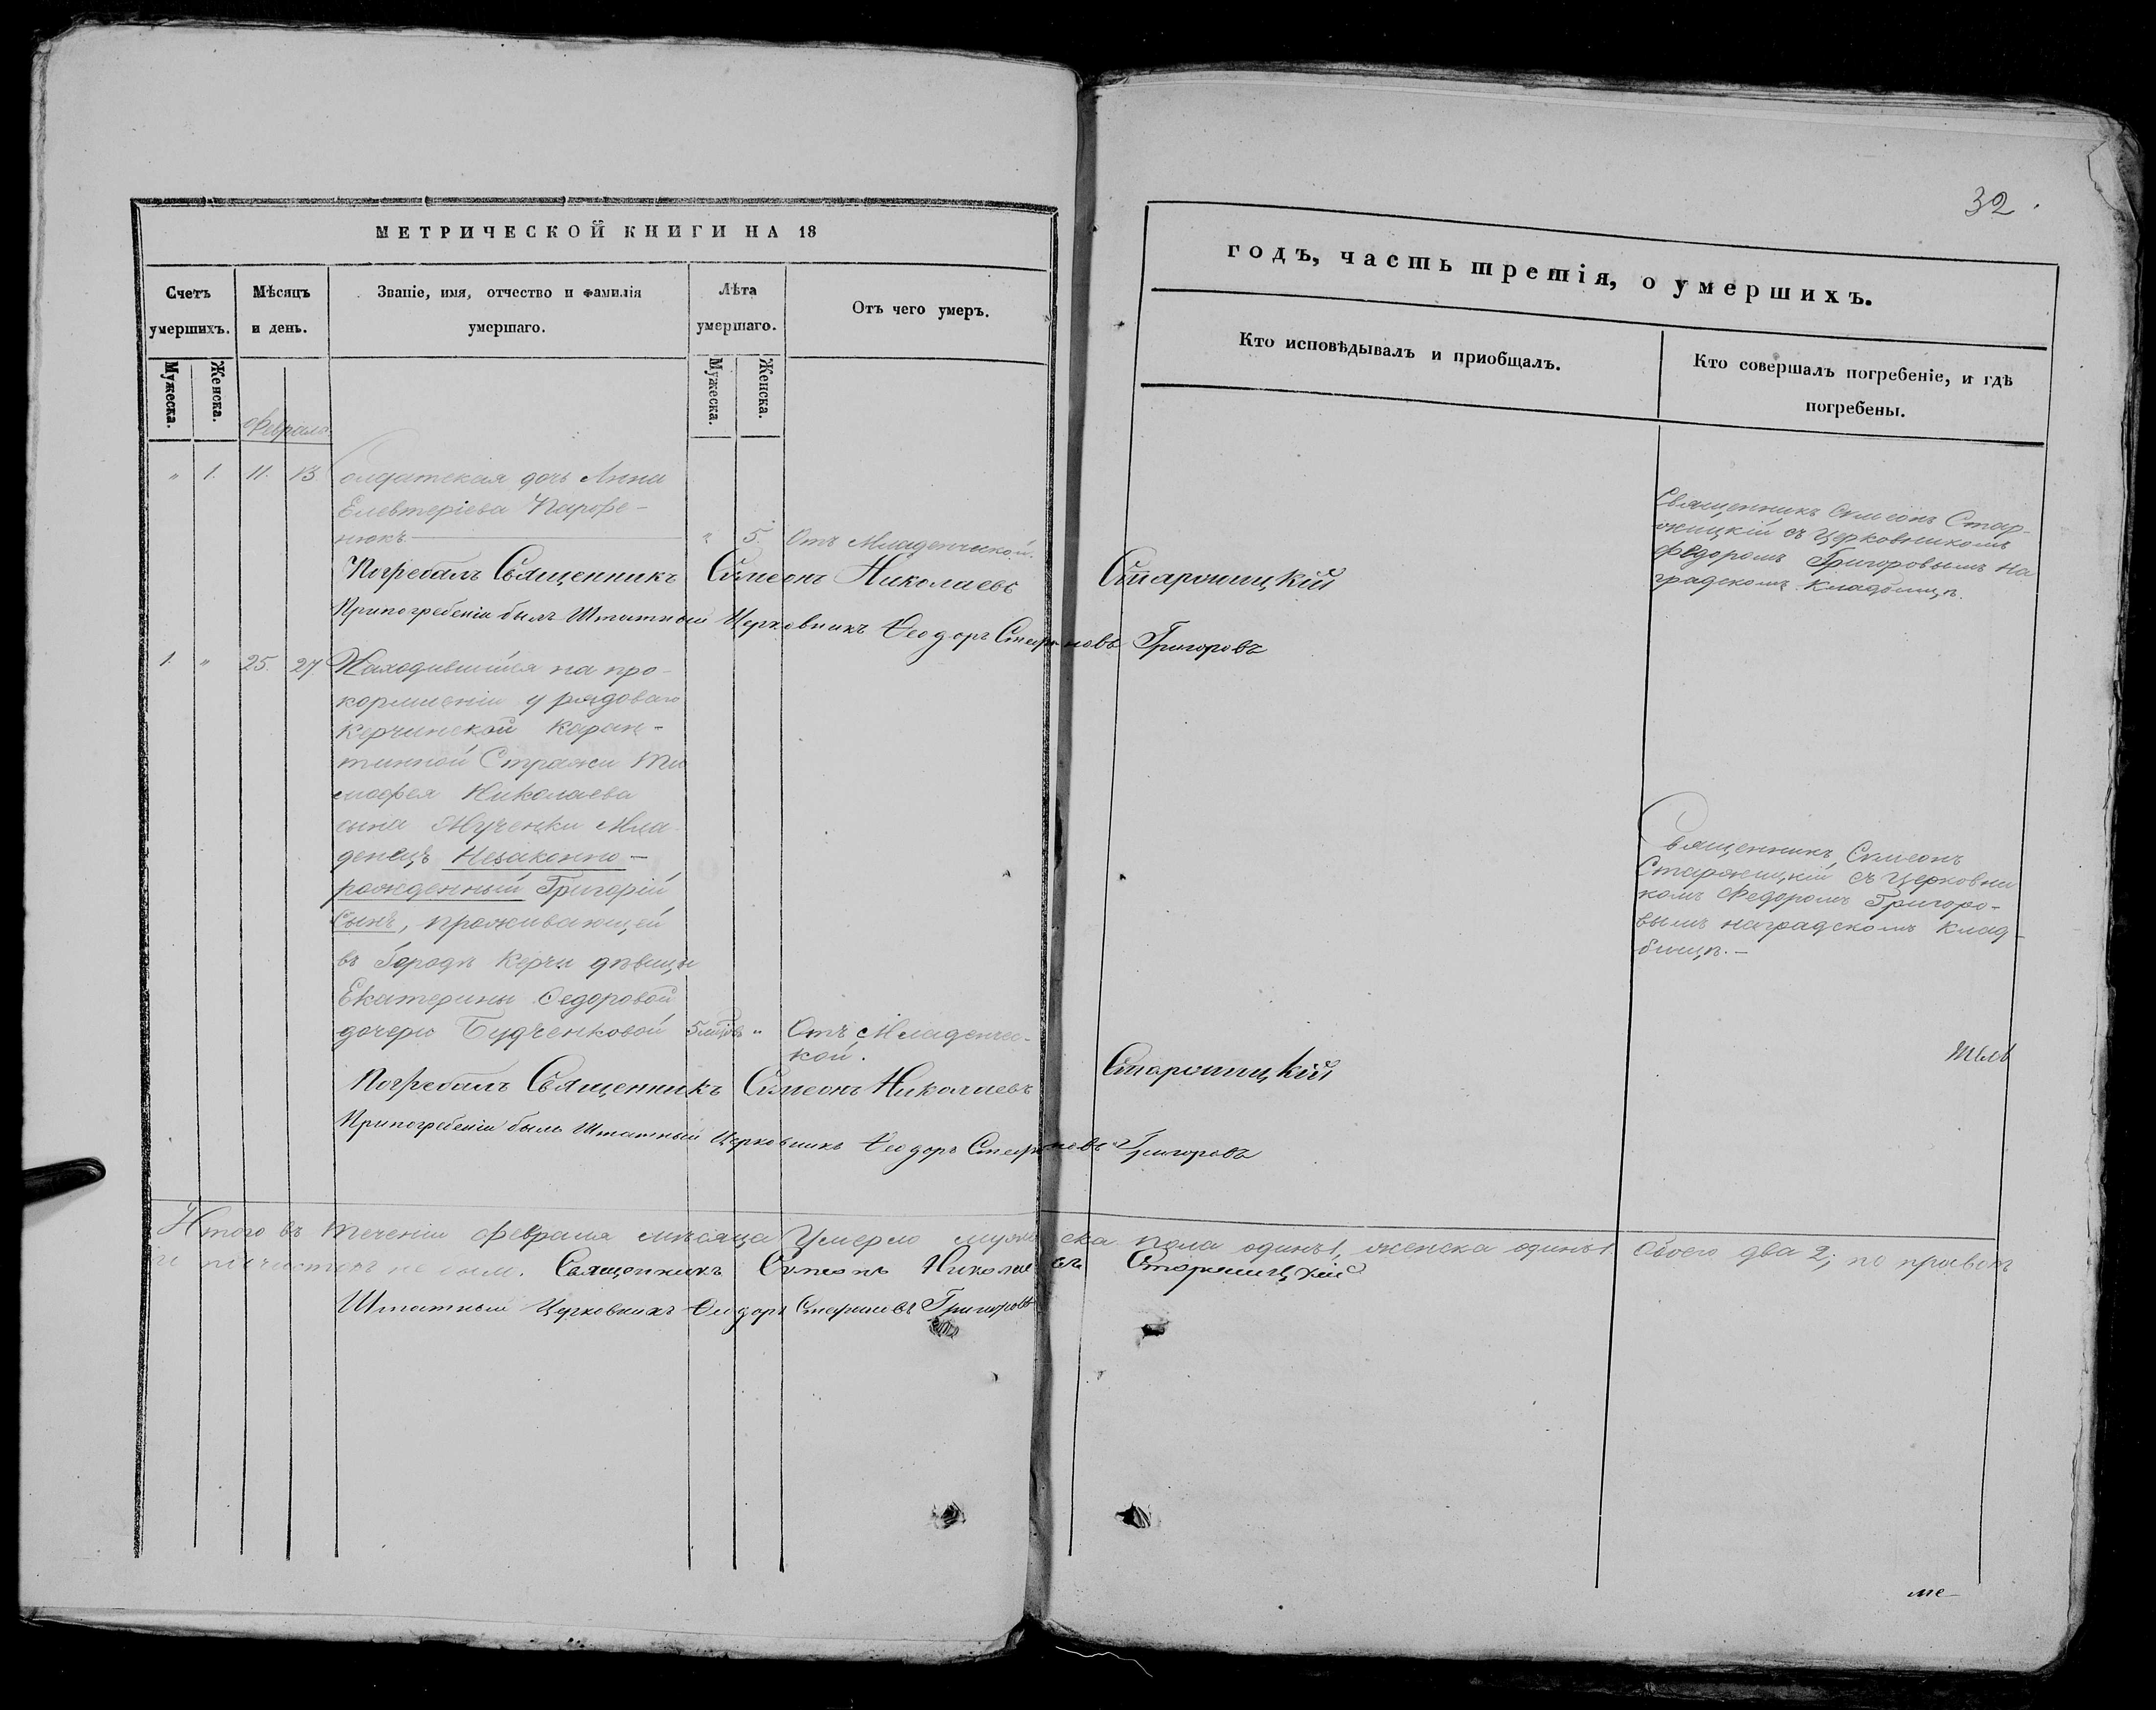 32.
МЕТРИЧЕСКОЙ КНИГИ НА 18
годъ, часть третія, о умершихъ.
Счетъ умершихъ.
Мѣсяцъ и день.
Званіе, имя, отчество и фамилія умершаго.
Лѣта умершаго.
Отъ чего умеръ.
Кто исповѣдывалъ и приобщалъ.
Кто совершалъ погребеніе, и гдѣ погребены.
Мужеска.
Женска.
Мужеска.
Женска.
Февраль
" 1. 11. 13. Солдатская дочь Анна
Елевтеріева Парфе-
нюкъ " 5. Отъ Младенческой.
Священникъ Симеонъ Стар-
ожицкій съ Церковникомъ
Федоромъ Григоровымъ на
градскомъ кладбищѣ.
Погребалъ Священникъ Симеонъ Николаевъ
При погребеніи былъ Штатный Церковникъ Ѳеодоръ Стефановъ Григоровъ
1. " 25. 27. Находившійся на про-
кормленіи у рядоваго
Керчинской Каран-
тинной Стражи Ти
мофея Николаева
сына Мученки Мла-
денецъ Незаконно-
рожденный Григорій
Сынъ, проживающей
въ Городѣ Керчи дѣвицы
Екатерины Федоровой
дочери Будченковой 5 " Отъ Младенчес-
кой.
Священникъ Симеонъ
Старожицкій съ Церковни
комъ Федоромъ Григоро-
вымъ на градскомъ клад-
бищѣ.-
Погребалъ Священникъ Симеонъ Николаевъ
При погребеніи былъ Штатный Церковникъ Ѳеодоръ Стефановъ Григоровъ
Итого въ теченіи февраля мѣсяца Умерло мужеска пола одинъ 1, женска одинъ 1. Обоего два 2;
Священникъ Симеонъ Николаевъ
Штатный Церковникъ Ѳеодоръ Стефановъ Григоровъ
ме-